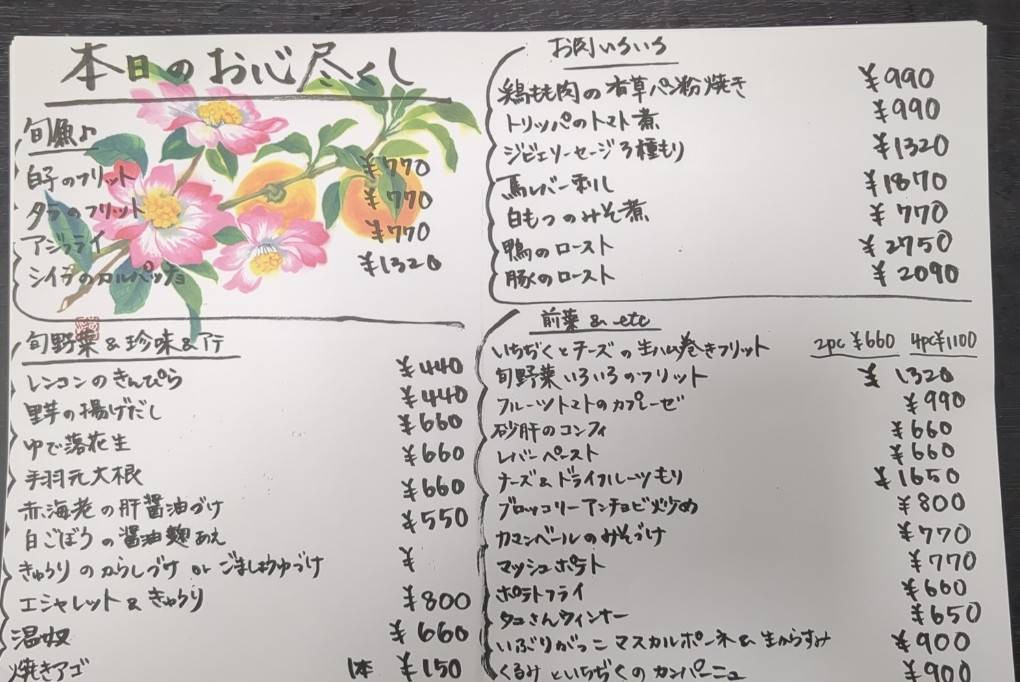 本日のお心尽くし
旬魚♪
白子のフリット ¥770
タラのフリット ¥770
アジフライ ¥770
シイラのカルパッチョ ¥1320
旬野菜&珍味&行
レンコンのきんぴら ¥440
里芋の揚げだし ¥440
ゆで落花生 ¥660
手羽元大根 ¥660
赤海老の肝醤油づけ ¥660
白ごぼうの醤油麹あえ ¥550
きゅうりのからしづけ or ごましょうゆづけ ¥
エシャレット&きゅうり ¥800
温奴 ¥660
焼きアゴ 1本 ¥150
お肉いろいろ
鶏もも肉の香草パン粉焼き ¥990
トリッパのトマト煮 ¥990
ジビエソーセージ3種もり ¥1320
馬レバー刺し ¥1870
白もつのみそ煮 ¥770
鴨のロースト ¥2750
豚のロースト ¥2090
前菜 & etc
いちぢくとチーズの生ハム巻きフリット 2pc ¥660 4pc¥1100
旬野菜いろいろのフリット ¥1320
フルーツトマトのカプレーゼ ¥990
砂肝のコンフィ ¥660
レバーペースト ¥660
チーズ&ドライフルーツもり ¥1650
ブロッコリーアンチョビ炒め ¥800
カマンベールのみそづけ ¥770
マッシュポテト ¥770
ポテトフライ ¥660
タコさんウィンナー ¥650
いぶりがっこマスカルポーネ&生からすみ ¥900
くるみといちぢくのカンパーニュ ¥900